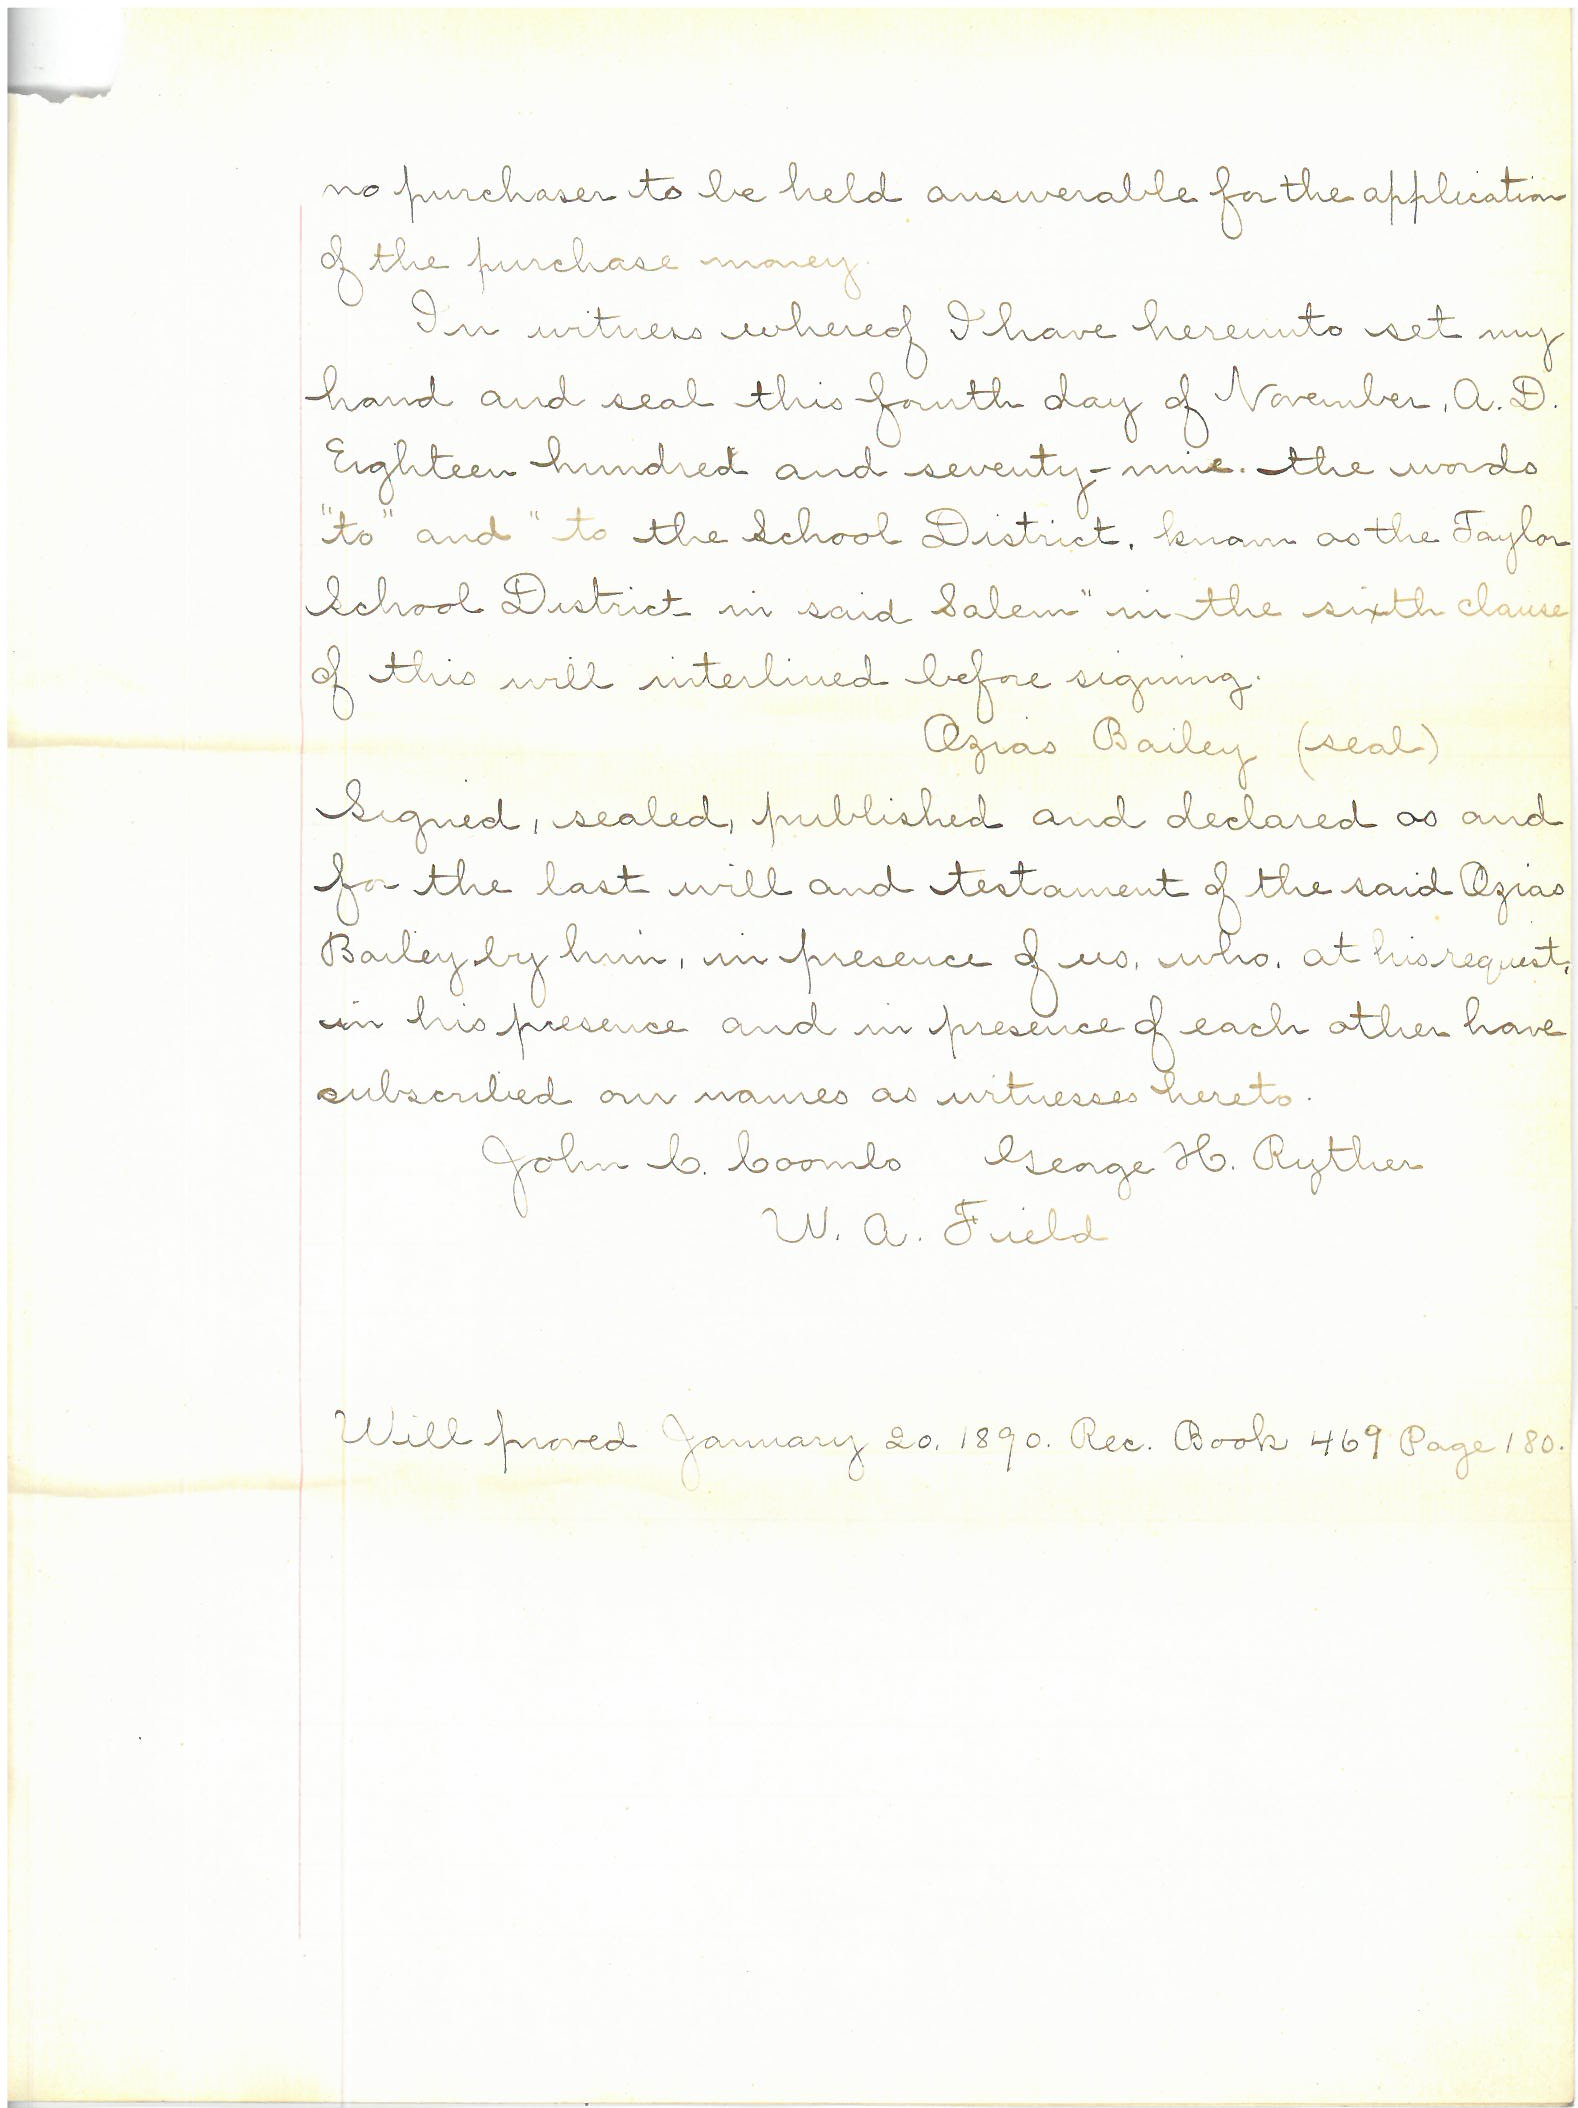 no purchaser to be held answerable for the application
of the purchase money.
In witness whereof I have hereunto set my
hand and seal this fourth day of November, A. D.
Eighteen hundred and seventy-nine. the words
"to" and "to the School District, known as the Taylor
School District in said Salem" in the sixth clause
of this will interlined before signing.
Ozias Bailey (seal)
Signed, sealed, published and declared as and
for the last will and testament of the said Ozias
Bailey by him, in presence of us, who, at his request,
in his presence and in presence of each other have
subscribed our names as witnesses hereto.
John C. Coombs George H. Ryther
W. A. Field
Will proved January 20, 1890. Rec. Book 469 Page 180.